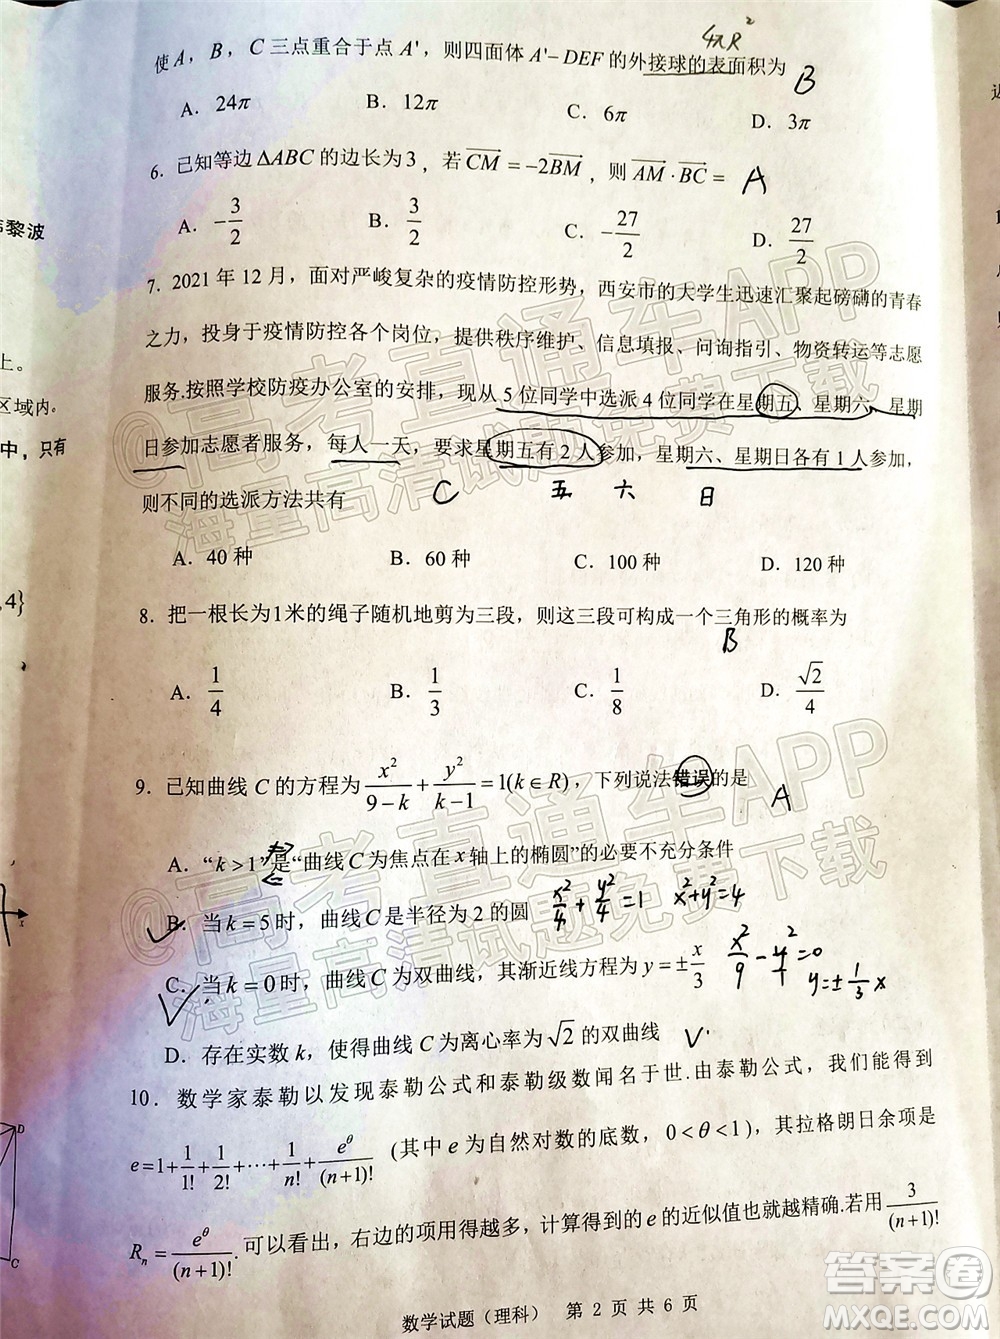 4πR²
使A，B，C三点重合于点A'，则四面体A'−DEF的外接球的表面积为 B
A．24π B．12π C．6π D．3π
6．已知等边ΔABC的边长为3，若CM=−2BM，则AM·BC= A
A．−3/2 B．3/2 C．−27/2 D．27/2
黎波
7．2021年12月，面对严峻复杂的疫情防控形势，西安市的大学生迅速汇聚起磅礴的青春
之力，投身于疫情防控各个岗位，提供秩序维护、信息填报、问询指引、物资转运等志愿
上。
服务.按照学校防疫办公室的安排，现从5位同学中选派4位同学在星期五、星期六、星期
区域内。
日参加志愿者服务，每人一天，要求星期五有2人参加，星期六、星期日各有1人参加，
中，只有
则不同的选派方法共有 C 五 六 日
A．40种 B．60种 C．100种 D．120种
,4}
8．把一根长为1米的绳子随机地剪为三段，则这三段可构成一个三角形的概率为
B
A．1/4 B．1/3 C．1/8 D．√2/4
9．已知曲线C的方程为x²/(9−k)+y²/(k−1)=1(k∈R)，下列说法错误的是 A
A．“k>1”是“曲线C为焦点在x轴上的椭圆”的必要不充分条件
B．当k=5时，曲线C是半径为2的圆 x²/4+y²/4=1 x²+y²=4
C．当k=0时，曲线C为双曲线，其渐近线方程为y=±x/3 y=±1/3x
D．存在实数k，使得曲线C为离心率为√2的双曲线
10．数学家泰勒以发现泰勒公式和泰勒级数闻名于世.由泰勒公式，我们能得到
e=1+1/1!+1/2!+···+1/n!+e^θ/(n+1)!（其中e为自然对数的底数，0<θ<1），其拉格朗日余项是
R_n=e^θ/(n+1)!.可以看出，右边的项用得越多，计算得到的e的近似值也就越精确.若用3/(n+1)!
D
C
x
数学试题（理科） 第2页共6页
@高考直通车APP
海量高清试题免费下载
@高考直通车APP
海量高清试题免费下载
答案圈
MXQE.COM